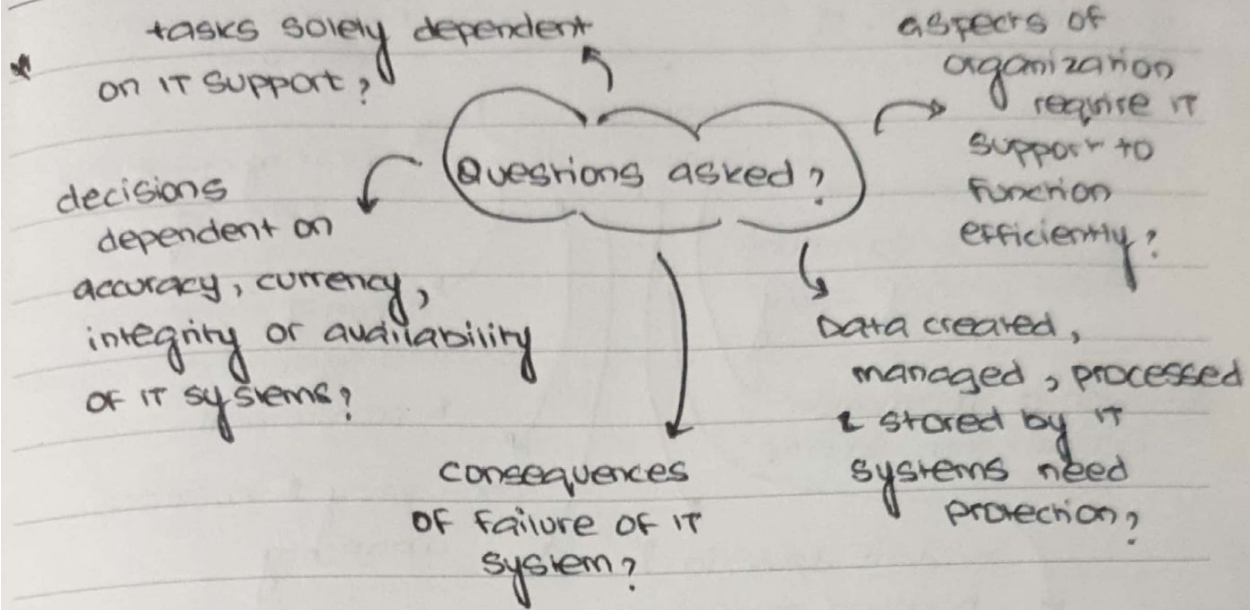 * tasks solely dependent
on IT support?
aspects of
organization
require IT
support to
function
efficiently?
Questions asked?
decisions
dependent on
accuracy, currency,
integrity or availability
of IT systems?
Data created,
managed, processed
& stored by IT
systems need
protection?
consequences
of failure of IT
system?